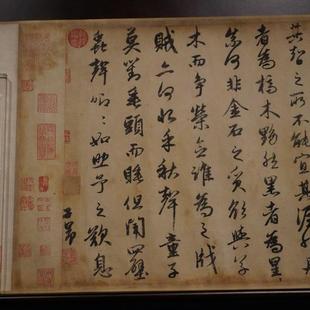 其智之所不能宜其渥然丹
者為槁木黟然黑者為星
奈何非金石之質欲與草
木而爭榮念誰為之戕
賊亦何恨乎秋聲童子
莫對垂頭而睡但聞四壁
蟲聲唧唧如助予之歎息
子昂